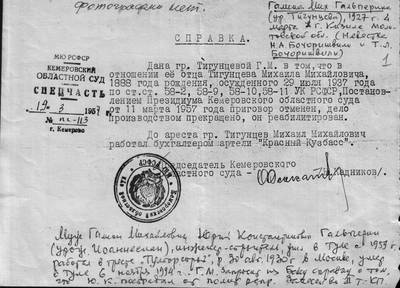 Фотографии нет.
Галина Мих Гальперина
(ур Тигунцева), 1927 г. 4
марта г. Казине
(Невестка
Н.А Бочоришвили и Т.Л.
Бочоришвили)
1
МЮ РСФСР
КЕМЕРОВСКИЙ
ОБЛАСТНОЙ СУД
СПЕЦЧАСТЬ
19.3 1957 г.
№ пс-113
г. Кемерово
СПРАВКА.
Дана гр. Тигунцевой Г.М. в том, что в
отношении её отца Тигунцева Михаила Михайловича,
1888 года рождения, осужденного 29 июля 1937 года
по ст.ст. 58-2, 58-9, 58-10, 58-11 УК РСФСР, Постанов-
лением Президиума Кемеровского областного суда
от 11 марта 1957 года приговор отменен, дело
производством прекращено, он реабилитирован.
До ареста гр. Тигунцев Михаил Михайлович
работал бухгалтером артели "Красный Кузбасс".
Председатель Кемеровского
областного суда -
/Кадников/.
Муж Галины Михайловны Юрий Константинович Гальперин
инженер-строитель, жил в Туле с 1953 г.
работал в тресте р. 30 авг. 1930 г. в Москве, умер
в Туле 6 ноября 19
Г.М. о том,
что Ю.К.